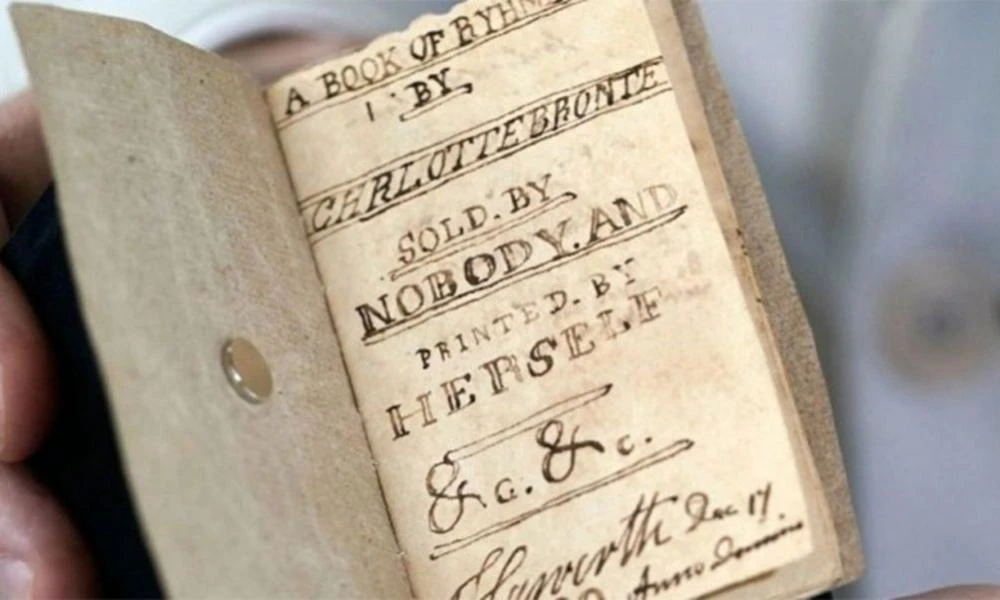 A BOOK OF RYHM
BY
CHRLOTTE BRONTE
SOLD. BY
NOBODY. AND
PRINTED. BY
HERSELF
&c. &c.
Haworth Dec 17
Anno Domini